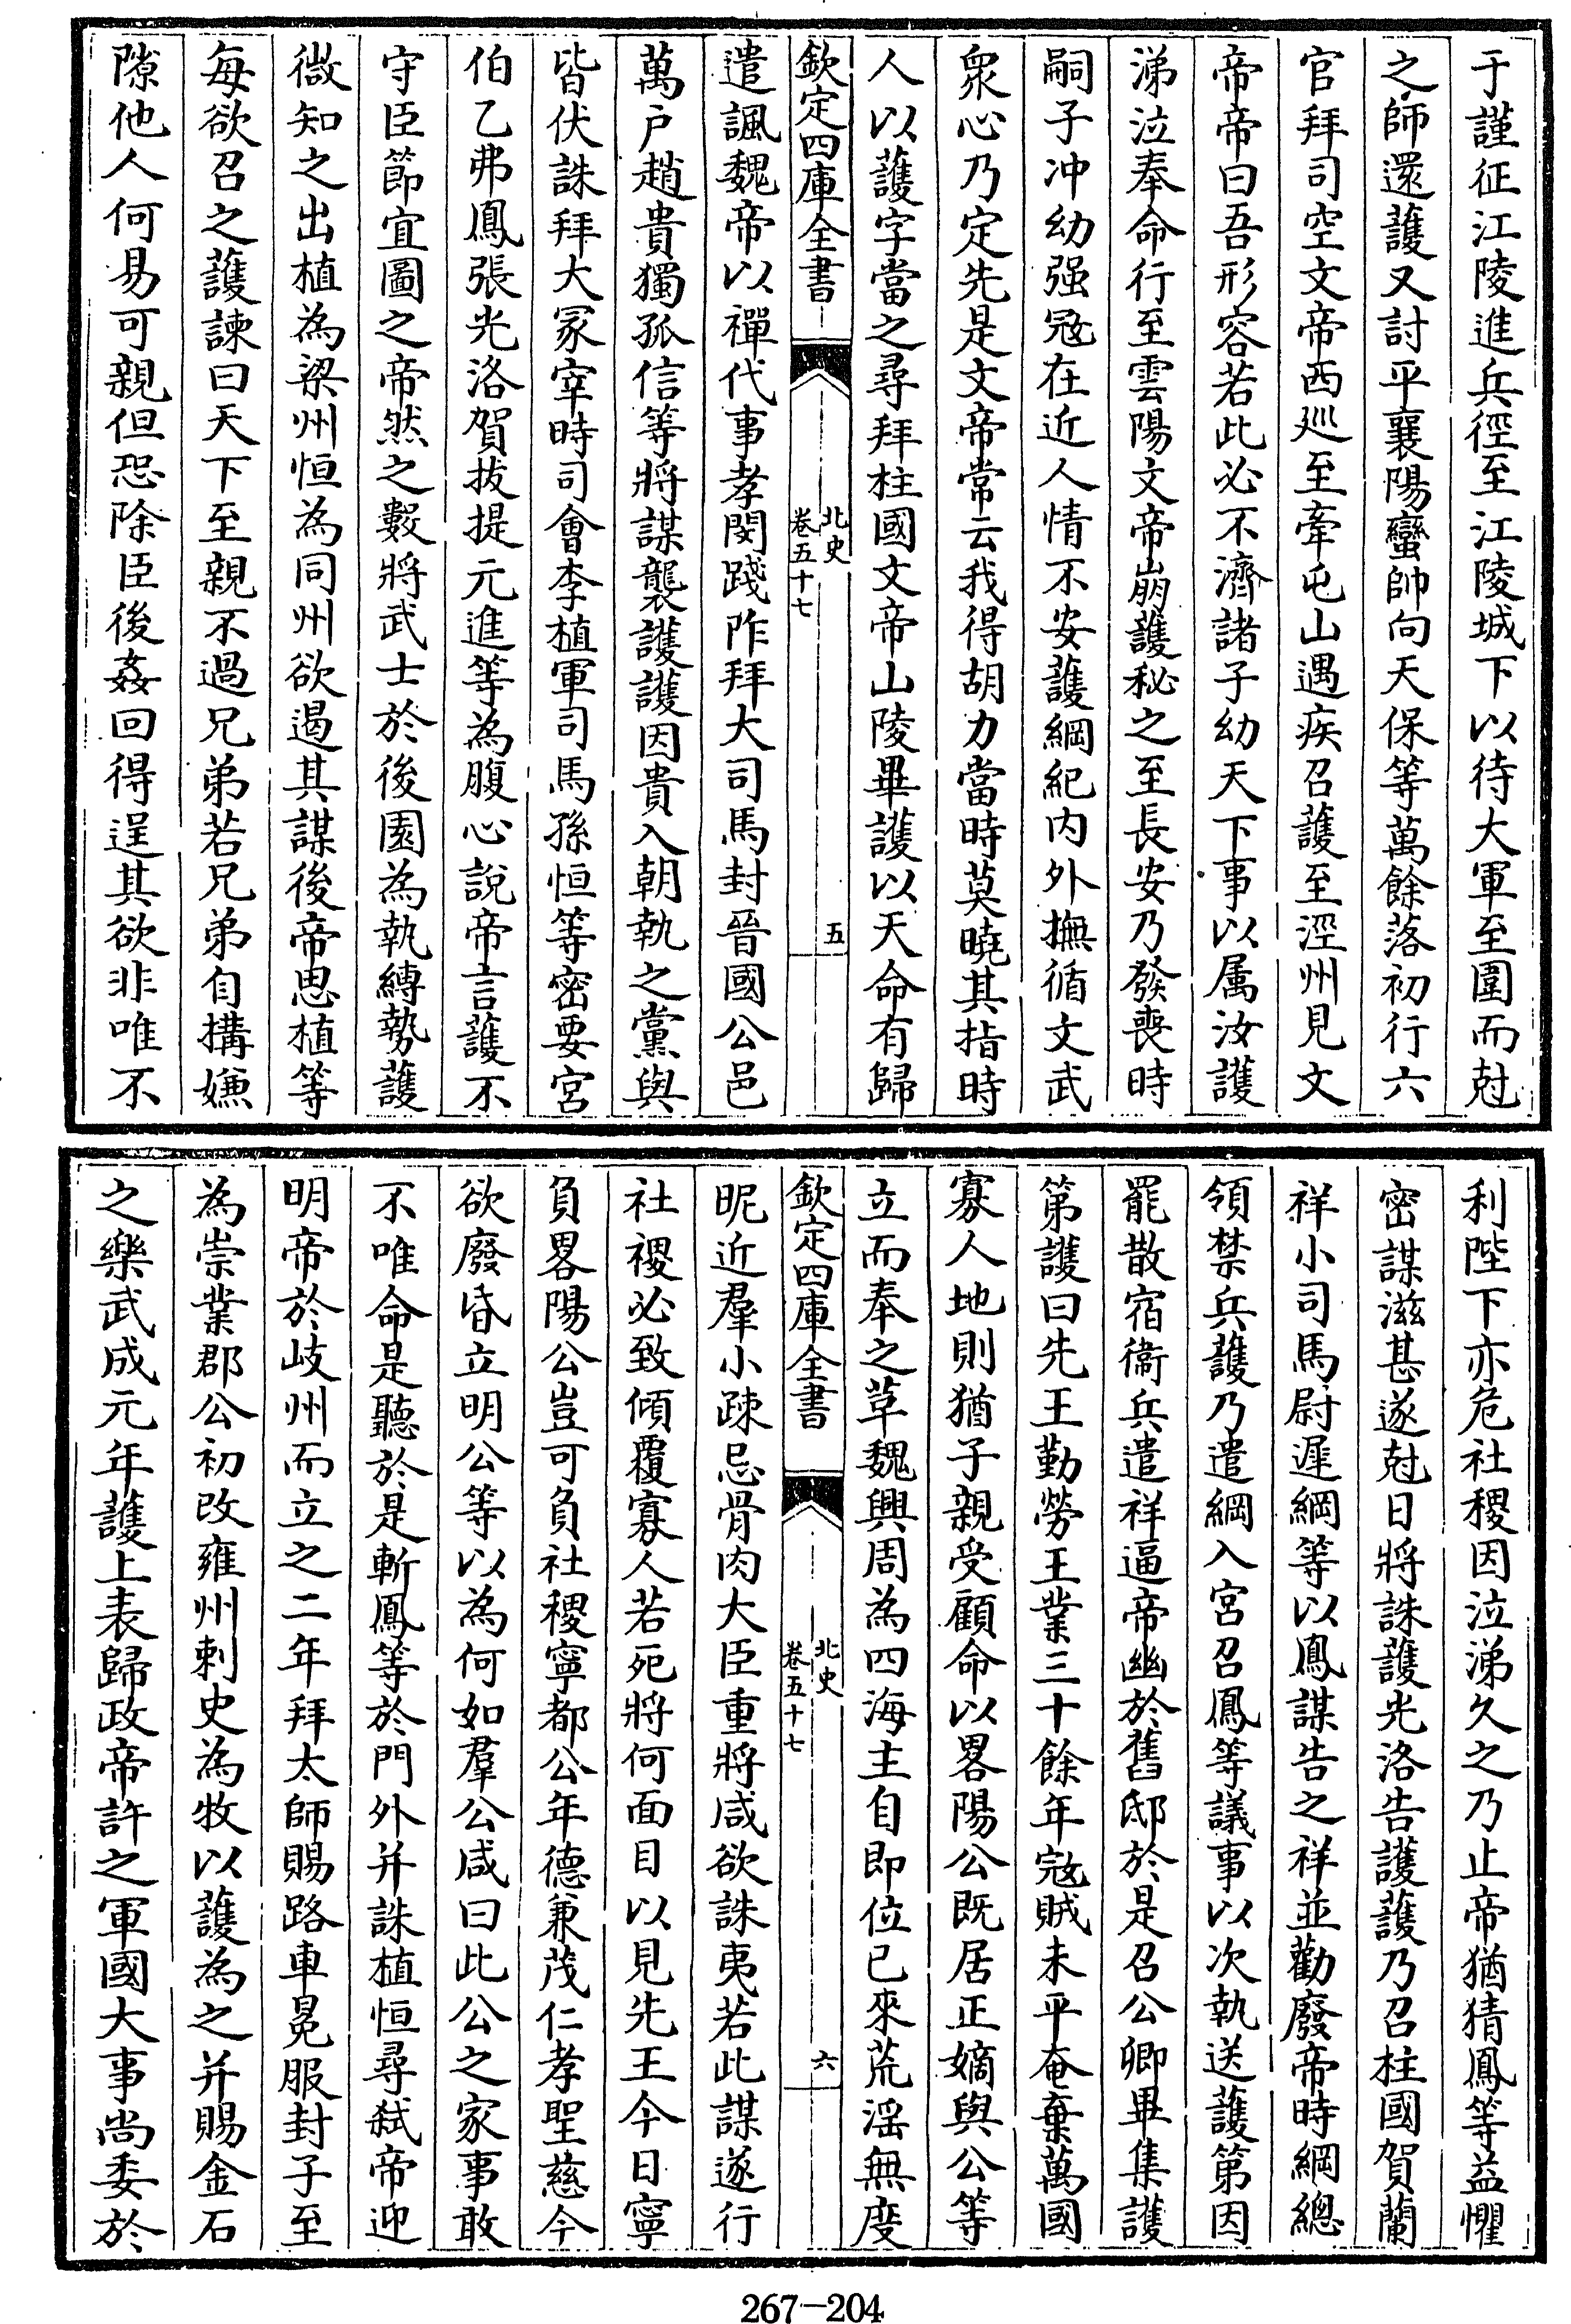 于謹征江陵進兵徑至江陵城下以待大軍至圍而尅
之師還護又討平襄陽蠻帥向天保等萬餘落初行六
官拜司空文帝西廵至牽屯山遇疾召護至涇州見文
帝帝曰吾形容若此必不濟諸子幼天下事以属汝護
涕泣奉命行至雲陽文帝崩護秘之至長安乃發喪時
嗣子冲幼强冦在近人情不安護綱紀内外撫循文武
衆心乃定先是文帝常云我得胡力當時莫曉其指時
人以護字當之尋拜柱國文帝山陵畢護以天命有歸
欽定四庫全書
北史
卷五十七
五
遣諷魏帝以禪代事孝閔踐阼拜大司馬封晉國公邑
萬户趙貴獨孤信等將謀襲護護因貴入朝執之黨與
皆伏誅拜大冢宰時司會李植軍司馬孫恒等密要宮
伯乙弗鳳張光洛賀拔提元進等為腹心說帝言護不
守臣節宜圖之帝然之數將武士於後園為執縛勢護
微知之出植為梁州恒為同州欲遏其謀後帝思植等
每欲召之護諫曰天下至親不過兄弟若兄弟自搆嫌
隙他人何易可親但恐除臣後姦回得逞其欲非唯不
利陛下亦危社稷因泣涕久之乃止帝猶猜鳳等益懼
密謀滋甚遂尅日將誅護光洛告護護乃召柱國賀蘭
祥小司馬尉遲綱等以鳳謀告之祥並勸廢帝時綱總
領禁兵護乃遣綱入宮召鳳等議事以次執送護第因
罷散宿衞兵遣祥逼帝幽於舊邸於是召公卿畢集護
第護曰先王勤勞王業三十餘年冦賊未平奄棄萬國
寡人地則猶子親受顧命以畧陽公既居正嫡與公等
立而奉之革魏興周為四海主自即位已來荒淫無度
欽定四庫全書
北史
卷五十七
六
昵近羣小疎忌骨肉大臣重將咸欲誅夷若此謀遂行
社稷必致傾覆寡人若死將何面目以見先王今日寧
負畧陽公豈可負社稷寧都公年德兼茂仁孝聖慈今
欲廢昏立明公等以為何如羣公咸曰此公之家事敢
不唯命是聽於是斬鳳等於門外并誅植恒尋弑帝迎
明帝於岐州而立之二年拜太師賜路車冕服封子至
為崇業郡公初改雍州刺史為牧以護為之并賜金石
之樂武成元年護上表歸政帝許之軍國大事尚委於
267-204